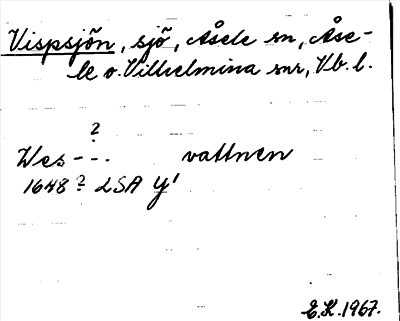 Vispsjön, sjö, Åsele sn, Åse-
le o. Vilhelmina snr, Vb. l.
?
Wes - - . vattnen
1648 ? LSA Y'
E.K. 1967.